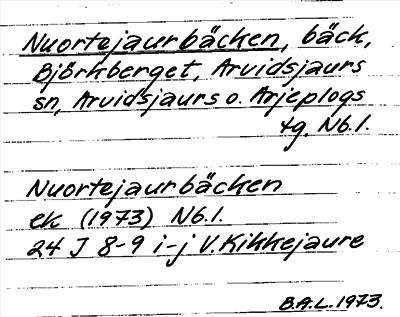 Nuortejaurbäcken, bäck,
Björkberget, Arvidsjaurs
sn, Arvidsjaurs o. Arjeplogs
tg, Nb.l.
Nuortejaurbäcken
ek (1973) Nb.l.
24 J 8-9 i-j V. Kikkejaure
B.A.L. 1973.